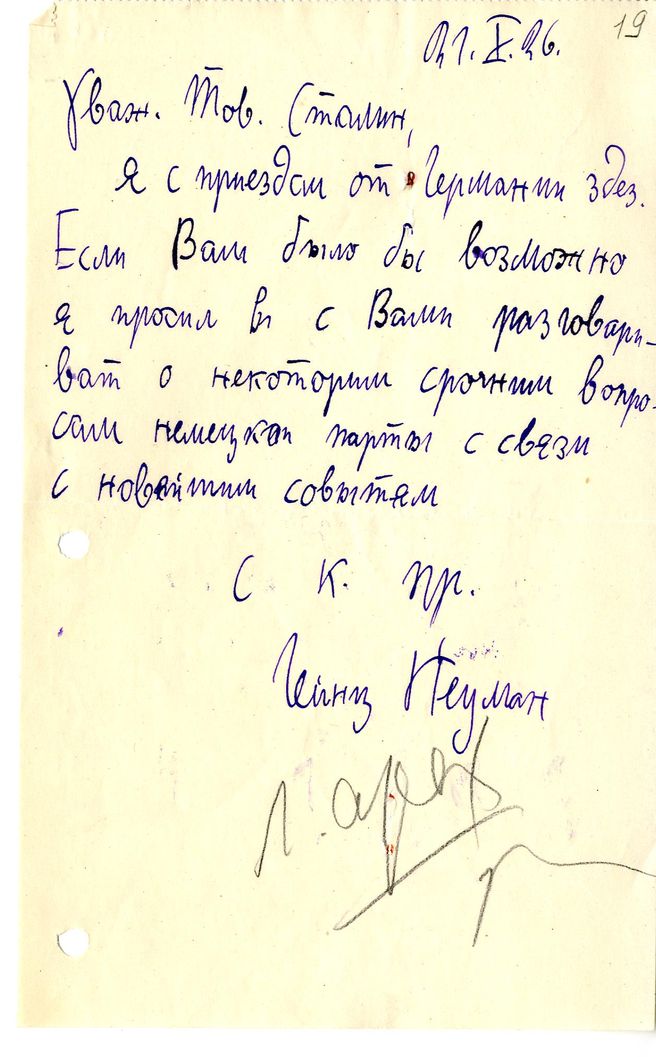 19
21.X.26.
Уваж. Тов. Сталин,
я с приездом от Германии здез.
Если Вам было бы возможно
я просил бы с Вами разговари-
ват о некоторим срочним вопро-
сам немецкой парты с связи
с новейшим событям
С К. пр.
Гейнц Неуман